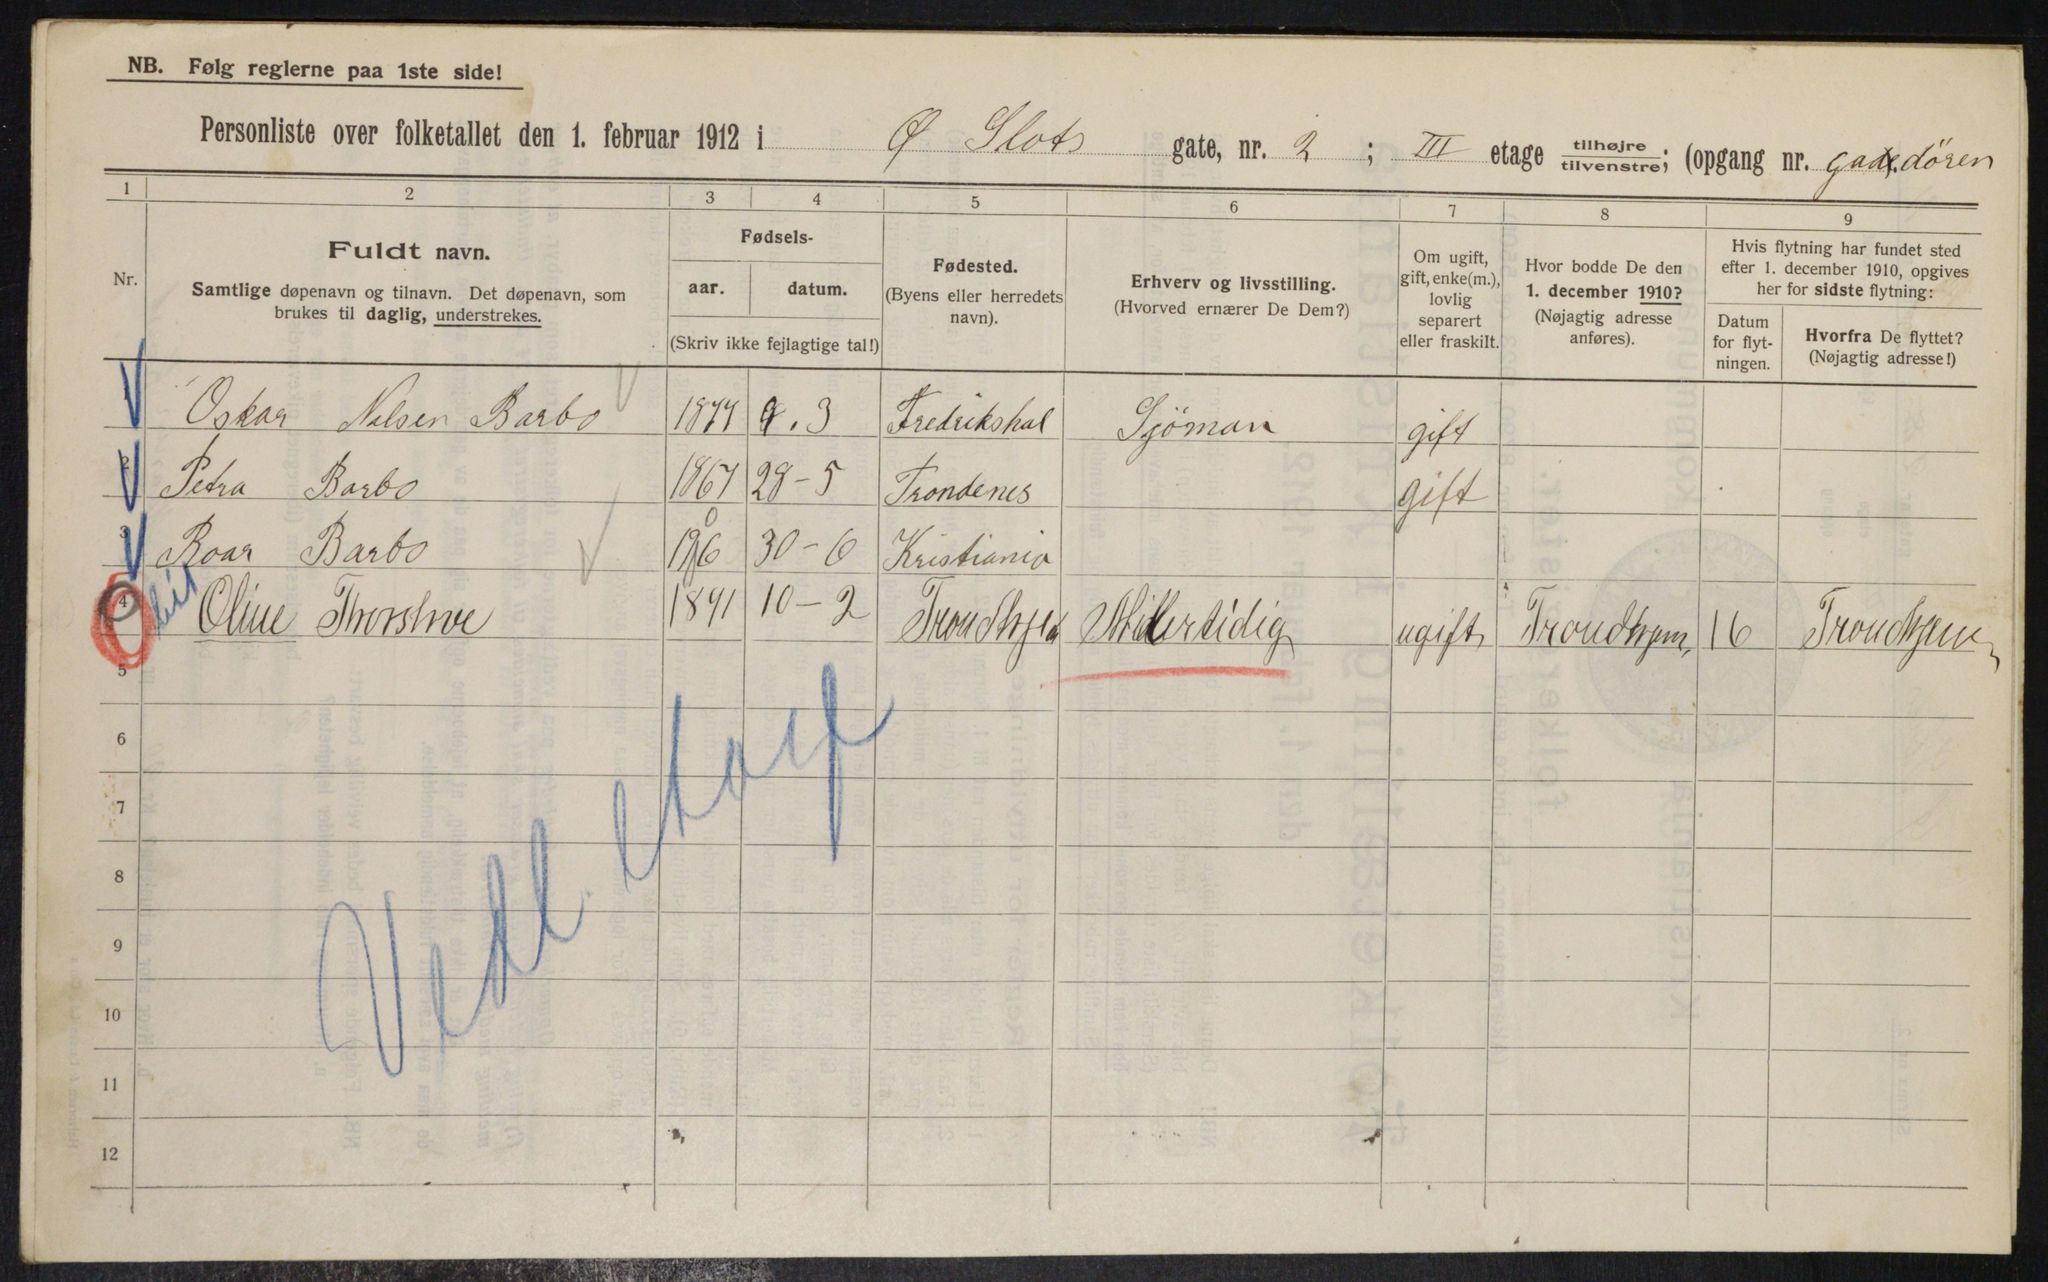 NB. Følg reglerne paa 1ste side!
Personliste over folketallet den 1. februar 1912 i Ø Slots gate, nr. 2 ; III etage tilhøjre/tilvenstre; (opgang nr. gadedören
1 2 3 4 5 6 7 8 9
Nr.
Fuldt navn.
Samtlige døpenavn og tilnavn. Det døpenavn, som
brukes til daglig, understrekes.
Fødsels-
aar. datum.
(Skriv ikke fejlagtige tal!)
Fødested.
(Byens eller herredets
navn).
Erhverv og livsstilling.
(Hvorved ernærer De Dem?)
Om ugift,
gift, enke(m.),
lovlig
separert
eller fraskilt.
Hvor bodde De den
1. december 1910?
(Nøjagtig adresse
anføres).
Hvis flytning har fundet sted
efter 1. december 1910, opgives
her for sidste flytning:
Datum
for flyt-
ningen.
Hvorfra De flyttet?
(Nøjagtig adresse!)
Oskar Nelsen Barbo 1877 9. 3 Fredrikshal Sjöman gift
2 Petra Barbo 1867 28-5 Trondenes gift
3 Roar Barbo 1906 30-6 Kristiania
4 Oline Thorshve 1891 10-2 Trondhjem Midlertidig ugift Trondhjem, 16 Trondhjem
5
6
7
8
9
10
11
12